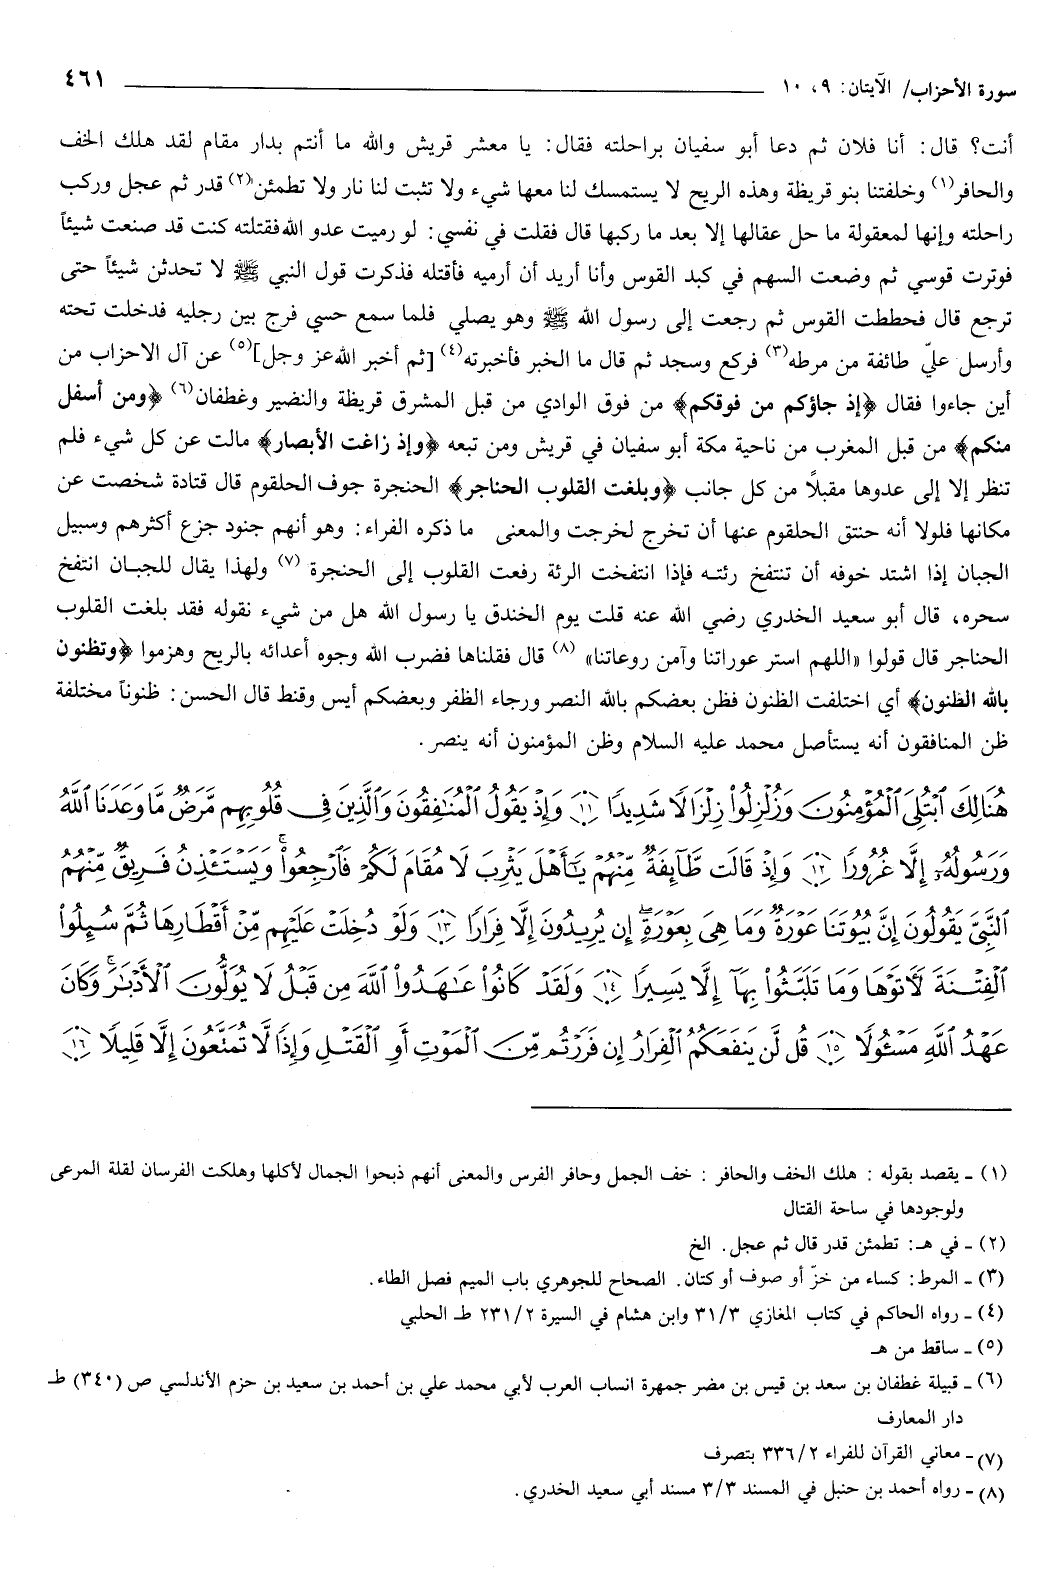 سورة الأحزاب/ الآيتان: ٩، ١٠ ٤٦١
أنت؟ قال: أنا فلان ثم دعا أبو سفيان براحلته فقال: يا معشر قريش والله ما أنتم بدار مقام لقد هلك الخف
والحافر(١) وخلفتنا بنو قريظة وهذه الريح لا يستمسك لنا معها شيء ولا تثبت لنا نار ولا تطمئن(٢) قدر ثم عجل وركب
راحلته وإنها لمعقولة ما حل عقالها إلا بعد ما ركبها قال فقلت في نفسي: لو رميت عدو الله فقتلته كنت قد صنعت شيئاً
فوترت قوسي ثم وضعت السهم في كبد القوس وأنا أريد أن أرميه فأقتله فذكرت قول النبي ﷺ لا تحدثن شيئاً حتى
ترجع قال فحططت القوس ثم رجعت إلى رسول الله ﷺ وهو يصلي فلما سمع حسي فرج بين رجليه فدخلت تحته
وأرسل عليّ طائفة من مرطه(٣) فركع وسجد ثم قال ما الخبر فأخبرته(٤) [ثم أخبر الله عز وجل](٥) عن آل الاحزاب من
أين جاءوا فقال ﴿إذ جاؤكم من فوقكم﴾ من فوق الوادي من قبل المشرق قريظة والنضير وغطفان(٦) ﴿ومن أسفل
منكم﴾ من قبل المغرب من ناحية مكة أبو سفيان في قريش ومن تبعه ﴿وإذ زاغت الأبصار﴾ مالت عن كل شيء فلم
تنظر إلا إلى عدوها مقبلاً من كل جانب ﴿وبلغت القلوب الحناجر﴾ الحنجرة جوف الحلقوم قال قتادة شخصت عن
مكانها فلولا أنه حنتق الحلقوم عنها أن تخرج لخرجت والمعنى ما ذكره الفراء: وهو أنهم جنود جزع أكثرهم وسبيل
الجبان إذا اشتد خوفه أن تنتفخ رئته فإذا انتفخت الرئة رفعت القلوب إلى الحنجرة (٧) ولهذا يقال للجبان انتفخ
سحره، قال أبو سعيد الخدري رضي الله عنه قلت يوم الخندق يا رسول الله هل من شيء نقوله فقد بلغت القلوب
الحناجر قال قولوا «اللهم استر عوراتنا وآمن روعاتنا» (٨) قال فقلناها فضرب الله وجوه أعدائه بالريح وهزموا ﴿وتظنون
بالله الظنون﴾ أي اختلفت الظنون فظن بعضكم بالله النصر ورجاء الظفر وبعضكم أيس وقنط قال الحسن: ظنوناً مختلفة
ظن المنافقون أنه يستأصل محمد عليه السلام وظن المؤمنون أنه ينصر.
هُنَالِكَ ٱبْتُلِىَ ٱلْمُؤْمِنُونَ وَزُلْزِلُوا۟ زِلْزَالًا شَدِيدًا ﴿١١﴾ وَإِذْ يَقُولُ ٱلْمُنَٰفِقُونَ وَٱلَّذِينَ فِى قُلُوبِهِم مَّرَضٌ مَّا وَعَدَنَا ٱللَّهُ
وَرَسُولُهُۥٓ إِلَّا غُرُورًا ﴿١٢﴾ وَإِذْ قَالَت طَّآئِفَةٌ مِّنْهُمْ يَٰٓأَهْلَ يَثْرِبَ لَا مُقَامَ لَكُمْ فَٱرْجِعُوا۟ ۚ وَيَسْتَـْٔذِنُ فَرِيقٌ مِّنْهُمُ
ٱلنَّبِىَّ يَقُولُونَ إِنَّ بُيُوتَنَا عَوْرَةٌ وَمَا هِىَ بِعَوْرَةٍ ۖ إِن يُرِيدُونَ إِلَّا فِرَارًا ﴿١٣﴾ وَلَوْ دُخِلَتْ عَلَيْهِم مِّنْ أَقْطَارِهَا ثُمَّ سُئِلُوا۟
ٱلْفِتْنَةَ لَـَٔاتَوْهَا وَمَا تَلَبَّثُوا۟ بِهَآ إِلَّا يَسِيرًا ﴿١٤﴾ وَلَقَدْ كَانُوا۟ عَٰهَدُوا۟ ٱللَّهَ مِن قَبْلُ لَا يُوَلُّونَ ٱلْأَدْبَٰرَ ۚ وَكَانَ
عَهْدُ ٱللَّهِ مَسْـُٔولًا ﴿١٥﴾ قُل لَّن يَنفَعَكُمُ ٱلْفِرَارُ إِن فَرَرْتُم مِّنَ ٱلْمَوْتِ أَوِ ٱلْقَتْلِ وَإِذًا لَّا تُمَتَّعُونَ إِلَّا قَلِيلًا ﴿١٦﴾
(١) ـ يقصد بقوله : هلك الخف والحافر : خف الجمل وحافر الفرس والمعنى أنهم ذبحوا الجمال لأكلها وهلكت الفرسان لقلة المرعى
ولوجودها في ساحة القتال
(٢) ـ في هـ: تطمئن قدر قال ثم عجل. الخ
(٣) ـ المرط: كساء من خزّ أو صوف أو كتان. الصحاح للجوهري باب الميم فصل الطاء.
(٤) ـ رواه الحاكم في كتاب المغازي ٣١/٣ وابن هشام في السيرة ٢٣١/٢ طـ الحلبي
(٥) ـ ساقط من هـ
(٦) ـ قبيلة غطفان بن سعد بن قيس بن مضر جمهرة انساب العرب لأبي محمد علي بن أحمد بن سعيد بن حزم الأندلسي ص (٣٤٠) طـ
دار المعارف
(٧) ـ معاني القرآن للفراء ٣٣٦/٢ بتصرف
(٨) ـ رواه أحمد بن حنبل في المسند ٣/٣ مسند أبي سعيد الخدري.